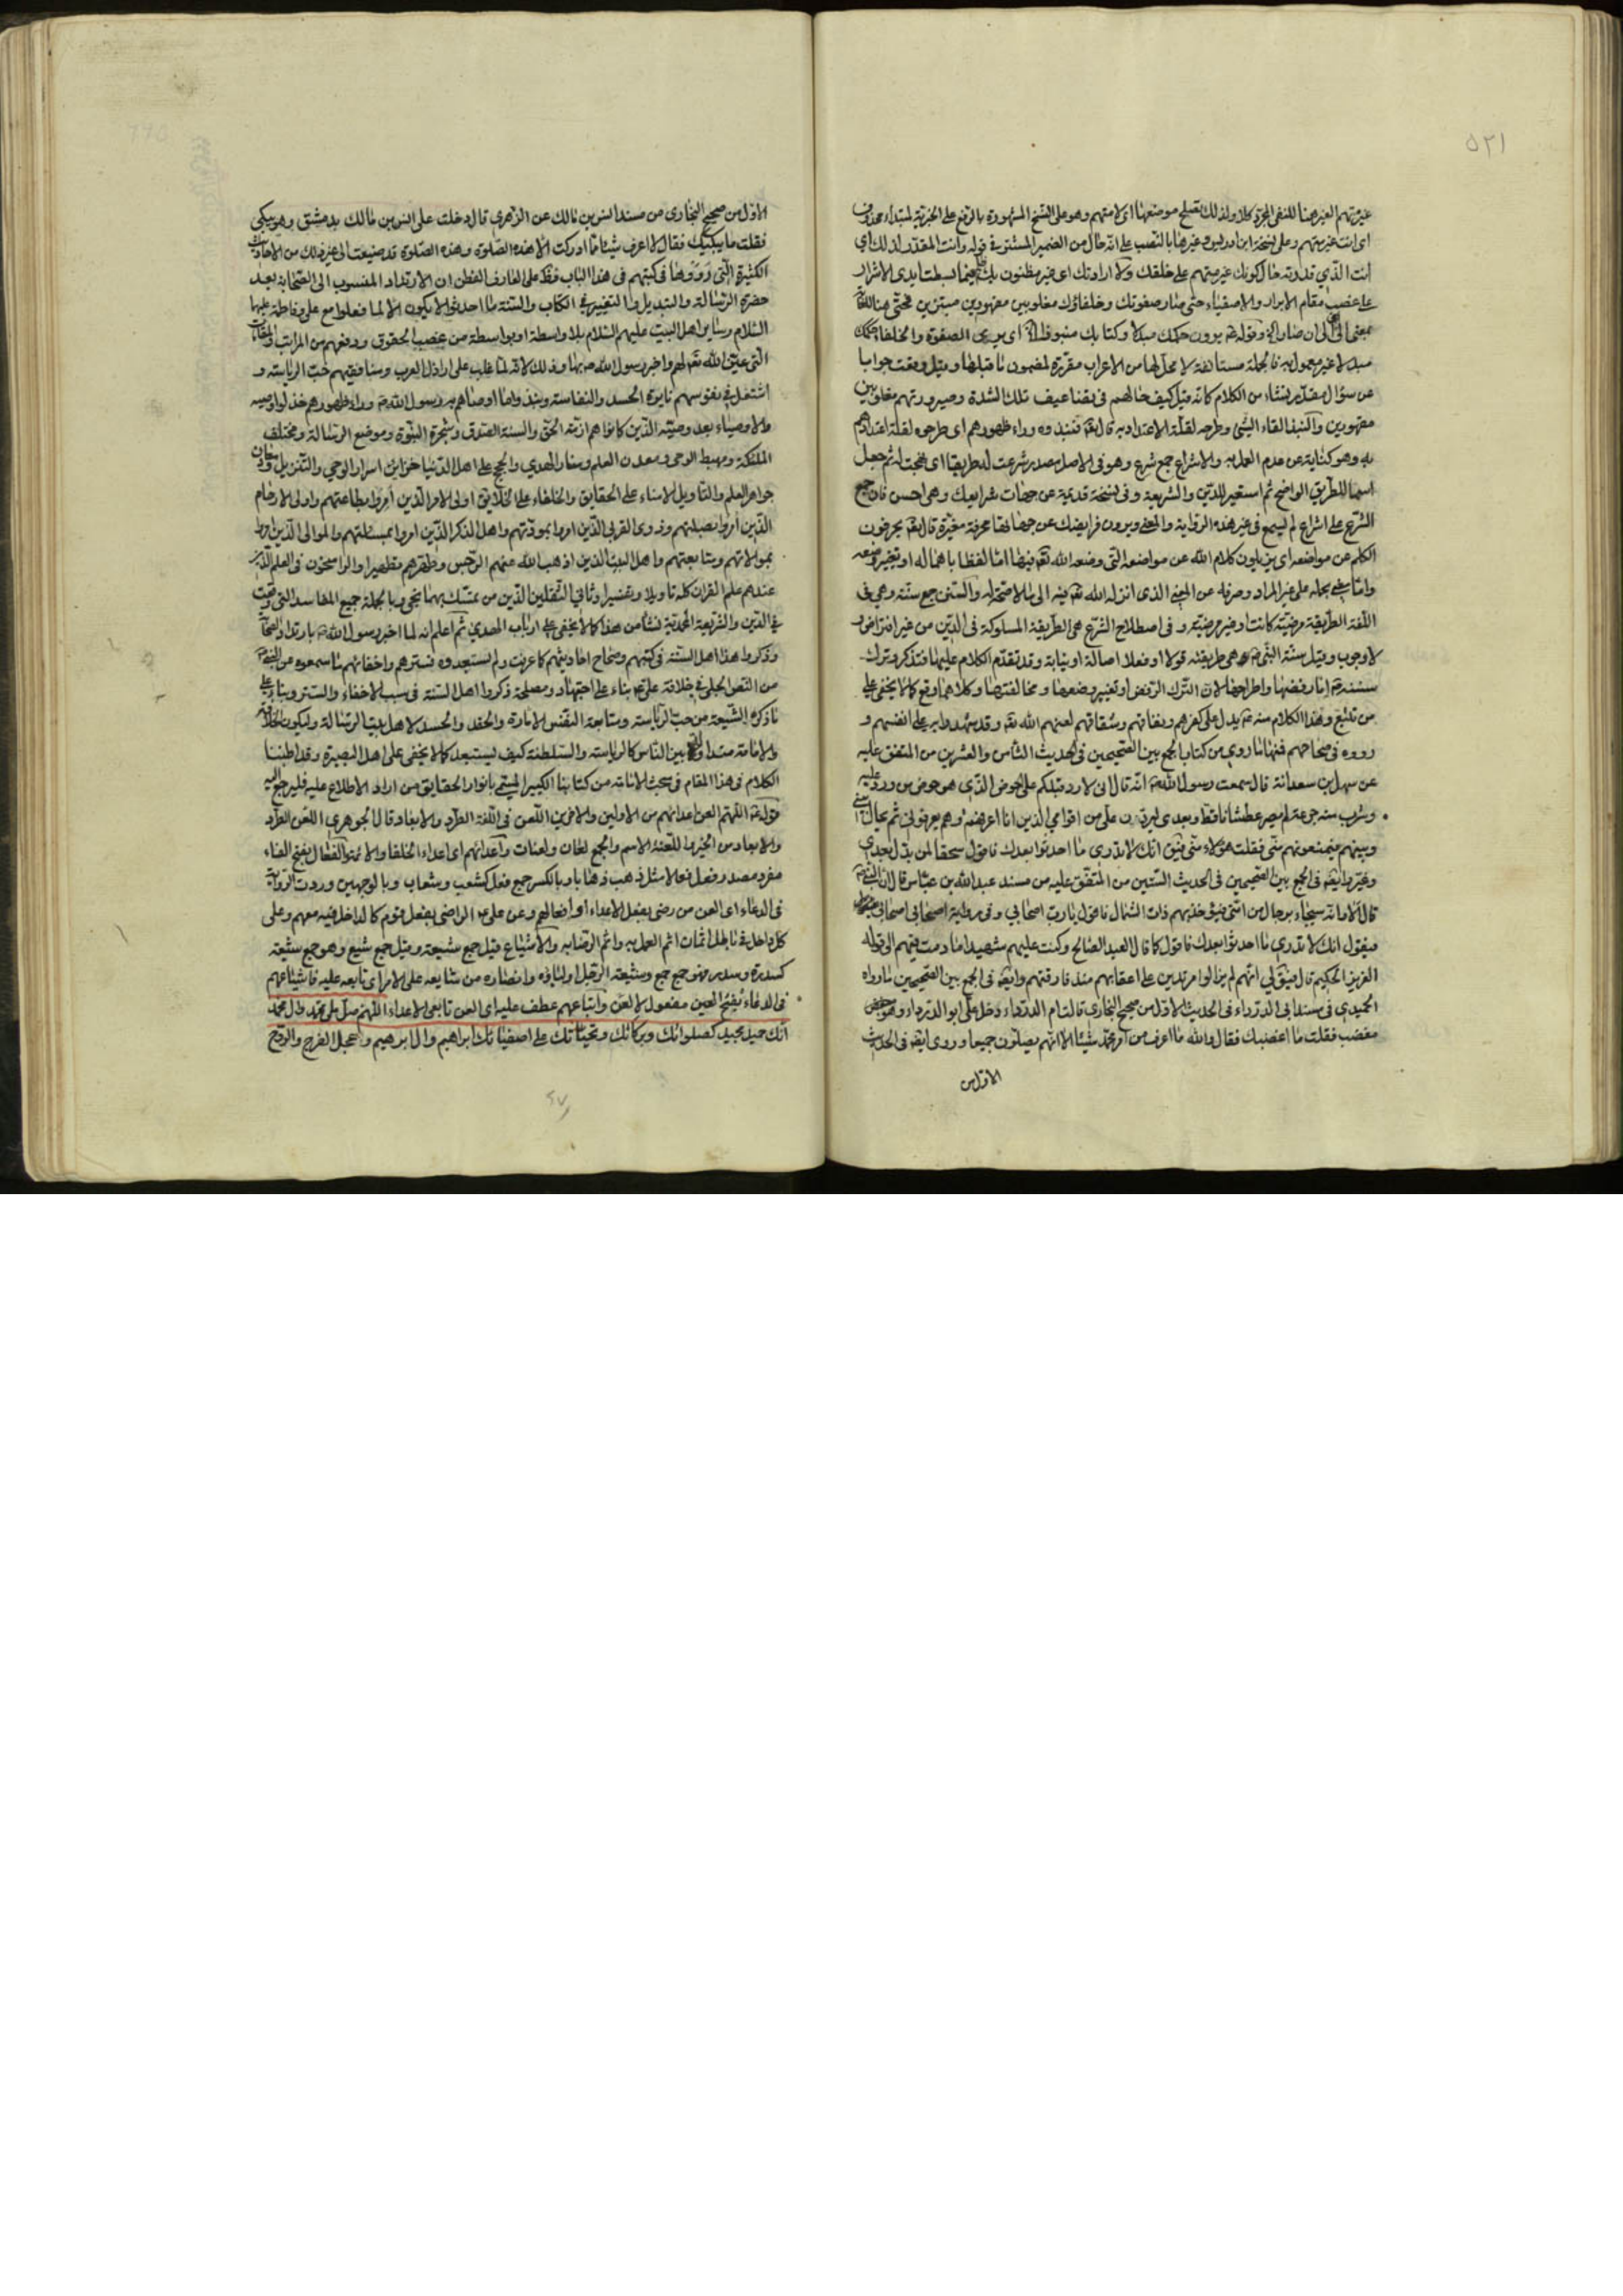 ٥٢١
غير متهم الغير هنا للنفى المجرد كلا ولذلك تصلح موضعها اى لا متهم وهو على النسخ المشهورة بالرفع على الخبرية لمبتداء محذوف
اى انت غير متهم وعلى نسخة ابن ادريس وغيرها بالنصب على انه حال من الضمير المستتر فى قوله وانت المقدر لذلك اى
انت الذي قدرته حال كونك غير متهم على خلقك ولا ارادتك اى غير مظنون بك فيما بسطت ايدى الاشرار
على غصب مقام الابرار والاصفياء حتى صار صفوتك وخلفاؤك مغلوبين مقهورين مبتزين فحتى هنا
بمعنى الى اى الى ان صار وقوله يرون حكمك مبدلا وكتابك منبوذا اى يرى الصفوة والخلفاء حكمك
مبدلا غير معمول به فالجملة مستأنفة لا محل لها من الاعراب مقررة لمضمون ما قبلها وقيل وقعت جوابا
عن سؤال مقدر نشاء من الكلام كانه قيل كيف حالهم فى تضاعيف تلك الشدة وصيرورتهم مغلوبين
مقهورين والنبذ القاء الشئ وطرحه لقلة الاعتداد به قال تعه فنبذوه وراء ظهورهم اى طرحوه لقلة اعتدادهم
به وهو كناية عن عدم العمل به والاشراع جمع شرع وهو فى الاصل مصدر شرعت له طريقا اى نهجت له ثم جعل
اسما للطريق الواضح ثم استعير للدين والشريعة وفى نسخة قديمة عن جهات شرايعك وهى احسن فان جمع
الشرع على اشراع لم يسمع فى غير هذه الرواية والمعنى ويرون فرايضك عن جهاتها محرفة مغيرة قال تعه يحرفون
الكلم عن مواضعه اى يزيلون كلام الله عن مواضعه التى وضعه الله تعه فيها اما لفظا باهماله او تغيير وضعه
واما معنى بحمله على غير المراد وصرفه عن المعنى الذى انزله الله تعه فيه الى ما لا صحة له والسنن جمع سنة وهى فى
اللغة الطريقة مرضية كانت او غير مرضية و فى اصطلاح الشرع هى الطريقة المسلوكة فى الدين من غير افتراض و
لا وجوب وقيل سنة النبى ص هى طريقته قولا او فعلا اصالة او نيابة وقد تقدم الكلام عليها فتذكر وترك
سنته اما رفضها واطراحها لان الترك الرفض او تغيير وضعها و مخالفتها وكلاهما وقع كما لا يخفى على
من تتبع وهذا الكلام منه ع يدل على كفرهم ونفاقهم وشقاقهم لعنهم الله تعه وقد شهدوا به على انفسهم و
رووه فى صحاحهم فمنها ما روى من كتاب الجمع بين الصحيحين فى الحديث الثامن والعشرين من المتفق عليه
عن سهل بن سعد انه قال سمعت رسول الله ص انه قال انى لا ورد قبلكم على الحوض الذى هو حوض من ورد عليه
وشرب منه جرعة لم يصر عطشانا قط وبعدى ليردن على من اقوامي الذين انا اعرفهم وهم يعرفونى ثم يحال بينى
وبينهم فيمنعونهم منى فقلت هؤلاء منى فيق انك لا تدرى ما احدثوا بعدك فاقول سحقا لمن بدل بعدى
وغير وايضه فى الجمع بين الصحيحين فى الحديث الستين من المتفق عليه من مسند عبدالله بن عباس قال ان النبى ص
قال الا وانه سيجاء برجال من امتى فيؤخذ بهم ذات الشمال فاقول يا رب اصحابي وفى رواية اصيحابى اصيحابى
فيقول انك لا تدرى ما احدثوا بعدك فاقول كما قال العبد الصالح وكنت عليهم شهيدا ما دمت فيهم الى قوله
العزيز الحكيم قال فيق لى انهم لم يزالوا مرتدين على اعقابهم منذ فارقتهم وايضه فى الجمع بين الصحيحين ما رواه
الحميدى فى مسند ابى الدرداء فى الحديث الاول من صحيح البخارى قالت ام الدرداء دخل على ابو الدرداء وهو
مغضب فقلت ما اغضبك فقال والله ما اعرف من امر محمد شيئا الا انهم يصلون جميعا وروى ايضه فى الحديث
الاول من
الاول من صحيح البخارى من مسند انس بن مالك عن الزهرى قال دخلت على انس بن مالك بدمشق وهو يبكى
فقلت ما يبكيك فقال لا اعرف شيئا مما ادركت الا هذه الصلوة وهذه الصلوة قد ضيعت الى غير ذلك من الاحاديث
الكثيرة التى رووها فى كتبهم فى هذا الباب فظهر على العارف الفطن ان الارتداد المنسوب الى الصحابة بعد
حضرة الرسالة والتبديل والتغيير فى الكتاب والسنة مما احدثوا لا يكون الا لما فعلوا مع على وفاطمة عليهما
السلام وساير اهل البيت عليهم السلام بلا واسطة او بواسطة من غصب الحقوق ودفعهم من المراتب والمقامات
التى عين الله تعه لهم واخبر رسول الله ص بها وذلك لانه لما غلب على اراذل العرب ومنافقيهم حب الرياسة و
اشتعل فى نفوسهم نايرة الحسد والنفاسة ونبذوا ما اوصاهم به رسول الله ص وراء ظهورهم خذلوا وصيه
والاوصياء بعد وصيته الذين كانوا هم ازمة الحق والسنة الصدق وشجرة النبوة وموضع الرسالة ومختلف
الملئكة ومهبط الوحى ومعدن العلم ومنار الهدى والحجج على اهل الدنيا خزاين اسرار الوحى والتنزيل ومعادن
جواهر العلم والتأويل الامناء على الحقايق والخلفاء على الخلايق اولى الامر الذين امروا بطاعتهم واولى الارحام
الذين امروا بصلتهم وذوى القربى الذين امروا بمودتهم واهل الذكر الذين امروا بمسئلتهم والموالى الذين امروا
بموالاتهم ومتابعتهم واهل البيت الذين اذهب الله عنهم الرجس وطهرهم تطهيرا والراسخون فى العلم الذين
عندهم علم القران كله تاويلا وتفسيرا وثانى الثقلين الذين من تمسك بهما نجى وبالجملة جميع المفاسد التى وقعت
فى الدين والشريعة المحمدية نشأ من هذا كما لا يخفى على ارباب الهدى ثم اعلم انه لما اخبر رسول الله ص بارتداد الصحابة
وذكروا هذا اهل السنة فى كتبهم وصحاح احاديثهم كما عرفت ولم يستبعدوه فسترهم واخفائهم ما سمعوه من النبى ص
من النص الجلى فى خلافة على ع بناء على اجتهاد ومصلحة ذكروا اهل السنة فى سبب الاخفاء والستر وبناء على
ما ذكره الشيعة من حب الرياسة ومتابعة النفس الامارة والحقد والحسد لاهل بيت الرسالة وليكون الخلافة
والامامة متداولة بين الناس كالرياسة والسلطنة كيف يستبعد كما لا يخفى على اهل البصيرة وقد اطنبنا
الكلام فى هذا المقام فى مبحث الامامة من كتابنا الكبير المسمى بانوار الحقايق من اراد الاطلاع عليه فليرجع اليه
قوله ع اللهم العن اعدائهم من الاولين والاخرين اللعن فى اللغة الطرد والابعاد وقال الجوهرى اللعن الطرد
والابعاد من الخير واللعنة الاسم والجمع لعان ولعنات واعدائهم اى اعداء الخلفا والائمة والفعال بفتح الفاء
مفرد مصدر فعل فعلا مثل ذهب ذهابا وبالكسر جمع فعل كشعب وشعاب وبالوجهين وردت الرواية
فى الدعاء اى العن من رضى بفعل الاعداء او أفعالهم وعن على ع الراضى بفعل قوم كالداخل فيه معهم وعلى
كل داخل فى باطل اثمان اثم العمل به واثم الرضا به والاشياع قيل جمع شيعة وقيل جمع شيع وهو جمع شيعة
كسدرة وسدر فهو جمع جمع وشيعة الرجل اولياؤه وانصاره من شايعه على الامر اى تابعه عليه فاشياعهم
فى الدعاء بفتح العين مفعول لالعن واتباعهم عطف عليه اى العن تابعى الاعداء اللهم صل على محمد وآل محمد
انك حميد مجيد كصلواتك وبركاتك وتحياتك على اصفيائك ابراهيم وال ابرهيم وعجل الفرج والروح